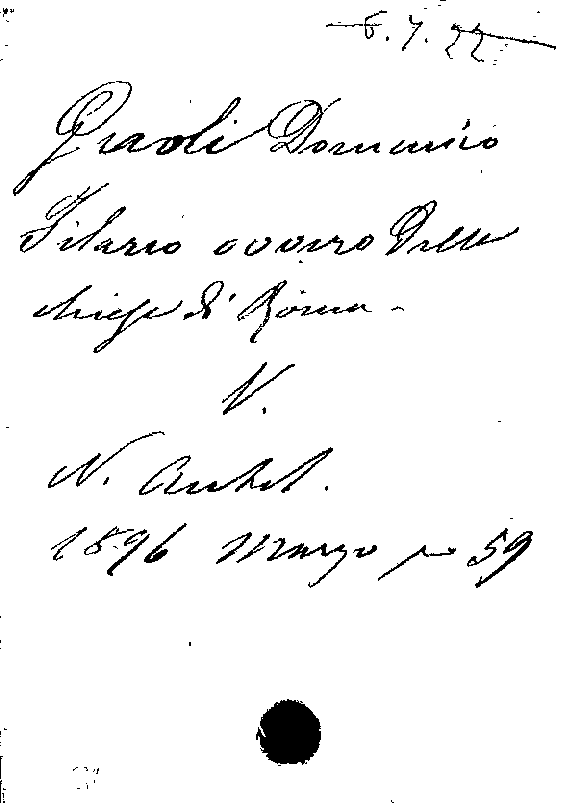 6.7.22
Gnoli Domenico
Ilario ovvero Delle
chiese di Roma -
V.
N. Antol.
1896 Marzo p 59